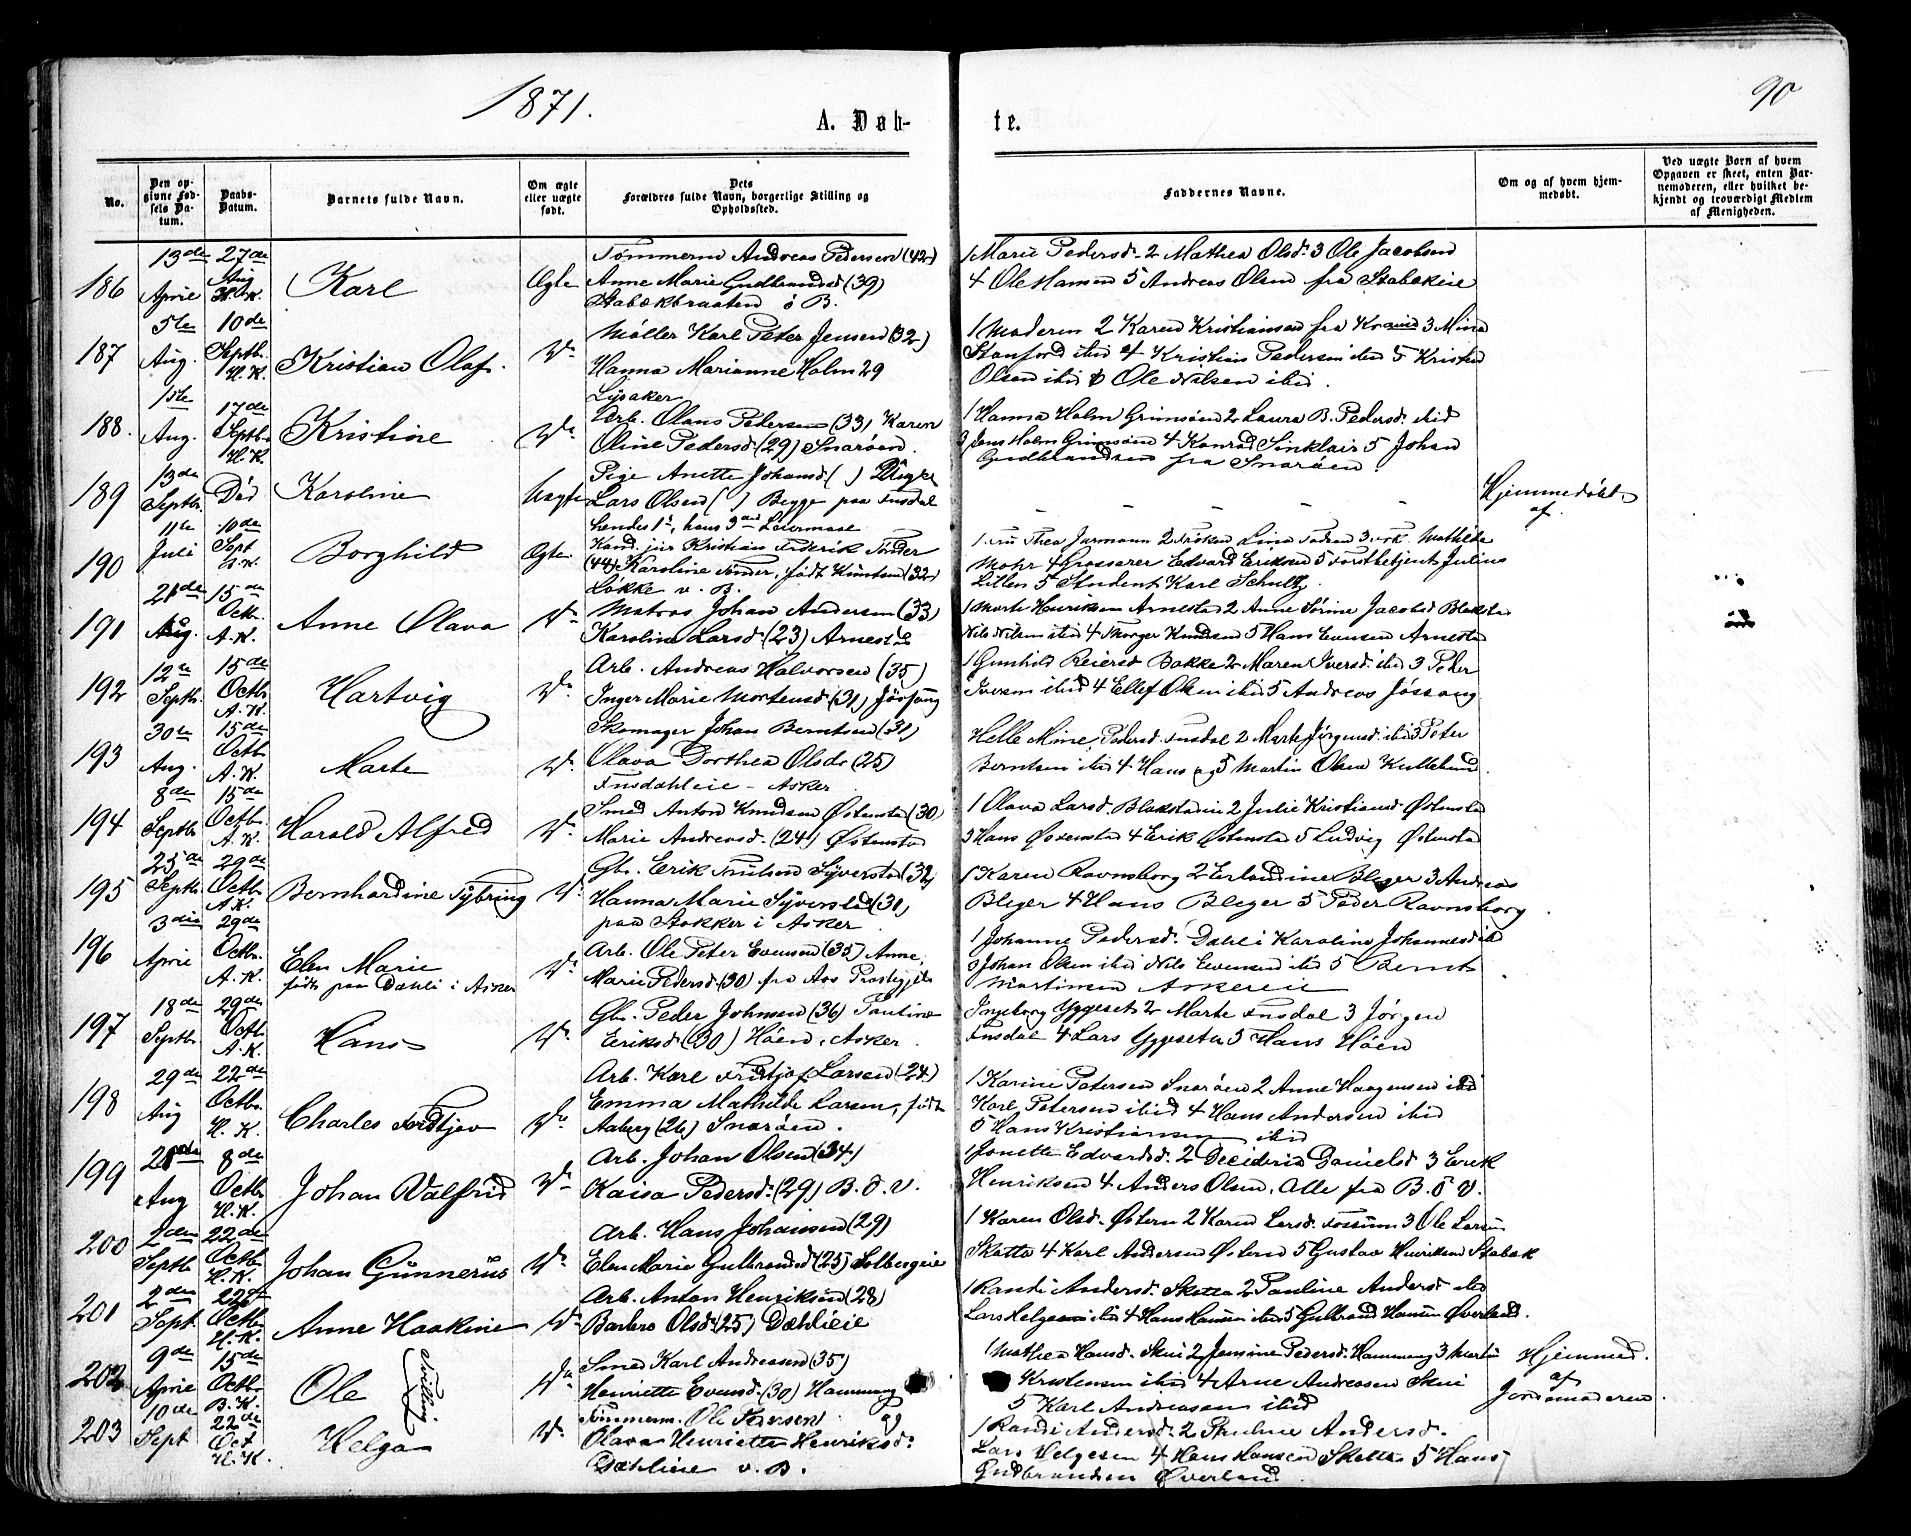 1871.
A. Døb-
te.
90
No.
Den op-
givne Fød-
sels Da-
tum.
Daabs-
Datum.
Barnets fulde Navn.
Om ægte
eller uægte
født.
Dets
Forældres fulde Navn, borgerlige Stilling og
Opholdssted.
Faddernes Navne.
Om og af hvem hjem-
medøbt.
Ved uægte Børn af hvem
Opgaven er skeet, enten Bar-
nemoderen, eller hvilket be-
kjendt og troværdigt Medlem
af Menigheden.
186
13de April
27de Aug H.K.
Karl
Ægte
Tømmerm Andreas Pedersen (42)
Anne Marie Gudbrandsd (39)
Stabækbraaten ø B.
1 Marie Pedersd. 2 Mathea Olsd. 3 Ole Jacobsen
4 Ole Hansen 5 Andreas Olsen fra Stabækeie
187
5te Aug.
10de Septbr. H.K.
Kristian Olaf.
Do
Møller Karl Peter Jensen (32)
Hanna Marianne Holm 29
Lysaker
1 Moderen 2 Karen Kristiansen fra 3 Mina
Stanford ibid 4 Kristian Pedersen ibid 5 Kristen
Olsen ibid 6 Ole Nilsen ibid.
188.
1ste Aug.
17de Septbr. H.K.
Kristine
Do
Arb. Olans Pedersen (33) Karen
Oline Pedersd. (29) Snarøen.
1 Hanna Holm Grimsøen 2 Laura B. Pedersd. ibid
3 Jens Holm Grimsøen 4 Konrad Sinklair 5 Johan
Gudbrandsen fra Snarøen.
189
13de Septbr.
Død
Karoline
Uægte
Pige Anette Johansd ( )
Lars Olsen ( ) Begge paa Fusdal
hendes 1ste, hans 3die Leiermaal
- - -
Hjemmedøbt
af
190
11te Juli
10de Sept H.K.
Borghild
Ægte
Kand. jur Kristian Frederik Tønder
(44) Karoline Tønder, født Knutsen (32)
Løkke v. B.
1 Fru Thea Jurmann 2 Frøken Lina 3 Frk. Mathilde
Mohr 4 Grosserer Edvard Eriksen 5 Forstbetjent Julius
Lillen 5 Student Karl Schultz.
191
21de Aug.
15de Octbr. A.K.
Anne Olava
Do
Matros Johan Andersen (33)
Karoline Larsd. (23) Arnestd
1 Marte Henriksen Arnestad 2 Anne Sørine Jacobsd Blakstad
Nils Nilsen ibid 4 Torger Knudsen 5 Hans Evensen Arnestad
192
12te Septbr.
15de Octbr. A.K.
Hartvig
Do
Arb. Andreas Halvorsen (35)
Inger Marie Mortensd. (31) Jøssong
1 Gunhild Reiersd Bakke 2 Maren Iversd. ibid 3 Peder
Iversen ibid 4 Ellef Olsen ibid 5 Andreas Jøssong
193
30te Aug.
15de Octbr A.K.
Marte
Do
Skomager Johan Berntsen (31)
Olava Dorthea Olsdr (25)
Fusdahleie - Asker
Helle Mine Pedersd. Fusdal 2 Marte Jørgensd. ibid 3 Peter
Berntsen ibid 4 Hans og 5 Martin Olsen Kullebund
194
8de Septbr
15de Octbr. A.K.
Harald Alfred
Do
Smed Anton Knudsen Østenstad (30)
Marie Andreasd. (24) Østenstad
1 Olava Larsd. Blakstadeie 2 Julie Kristiansd. Østenstad
3 Hans Østenstad 4 Erik Østenstad 5 Ludvig Østenstad
195
25de Septbr.
29de Octbr A.K.
Bernhardine Sybring
Do
Gbr. Erik Truelsen Syverstad (32)
Hanna Marie Syverstad (31)
paa Stokker i Asker
1 Karen Ravnsborg 2 Erlandine Bleger 3 Andreas
Bleger 4 Hans Bleger 5 Peder Ravnsborg
196
3die April
29de Octbr. A.K.
Elen Marie
født paa Dahli i Asker
Do
Arb. Ole Peter Evensen (35) Anne
Marie Pedersd. (30) fra Aas Præstegjeld
1 Johanne Pedersd. Dahl i Karoline Johannesd ib
3 Johan Olsen ibid Nils Evensen ibid 5 Bernt
Martinsen Askereie
197
18de Septbr
29de Octbr. A.K.
Hans
Do
Gbr. Peder Johnsen (36) Pauline
Eriksd. (30) Høen, Asker.
Ingeborg Yggeset 2 Marte Fusdal 3 Jørgen
Fusdal 4 Lars Yggeset 5 Hans Høen
198
29de Aug
22de Octbr. H.K.
Charles Fridtjov
Do
Arb. Karl Fridtjof Larsen (24)
Emma Mathilde Larsen, født
Aaberg (26) Snarøen.
1 Karine Petersen Snarøen 2 Anne Haagensen ibid
Karl Petersen ibid 4 Hans Andersen ibid
5 Hans Kristiansen ibid
199
Aug
8de Octbr. H.K.
Johan Valfrid
Do
Arb. Johan Olsen (34)
Kaisa Pedersd. (29) B. ø. V.
1 Jonette Edvardsd. 2 Decideria Danielsd 3 Erik
Henriksen 4 Anders Olsen. Alle fra B. ø V.
200
2den Septbr
22de Octbr H.K.
Johan Günnerüs
Do
Arb. Hans Johansen (29)
Elen Marie Gulbrandsd (25) Solbergeie
1 Karen Olsd. Østern 2 Karen Larsd. Fossum 3 Ole Larsen
Skotta 4 Karl Andersen Østern 5 Gustav Henriksen Stabæk
201
2den Sept.
22de Octbr H.K.
Anne Haakine
Do
Arb. Anton Henriksen (28)
Barbro Olsd. (25) Dæhlieie
1 Randi Andersd. Skotta 2 Pauline Andersd ibid
Lars Helgesen ibid 4 Hans Hansen ibid 5 Gulbrand Hansen Øverland.
202
9de April
15de Octbr. B.K.
Ole
Tvilling
Do
Smed Karl Andreasen (35)
Henriette Evensd. (30) Hammang
1 Mathea Hansd. Skui 2 Jensine Pedersd. Hammang 3 Martin
Kristensen ibid 4 Arne Andreassen Skui
5 Karl Andreasen ibid
Hjemmed.
af
Jordmoderen.
203
10de Sept
22de Oct H.K.
Helga
Do
Tømmerm. Ole Pedersen og
Olava Henriette Henriksd.
Dæhlieie v. B.
1 Randi Andersd. 2 Pauline Andersd.
Lars Helgesen 4 Hans Hansen Skotta 5 Hans
Gudbrandsen Øverland.